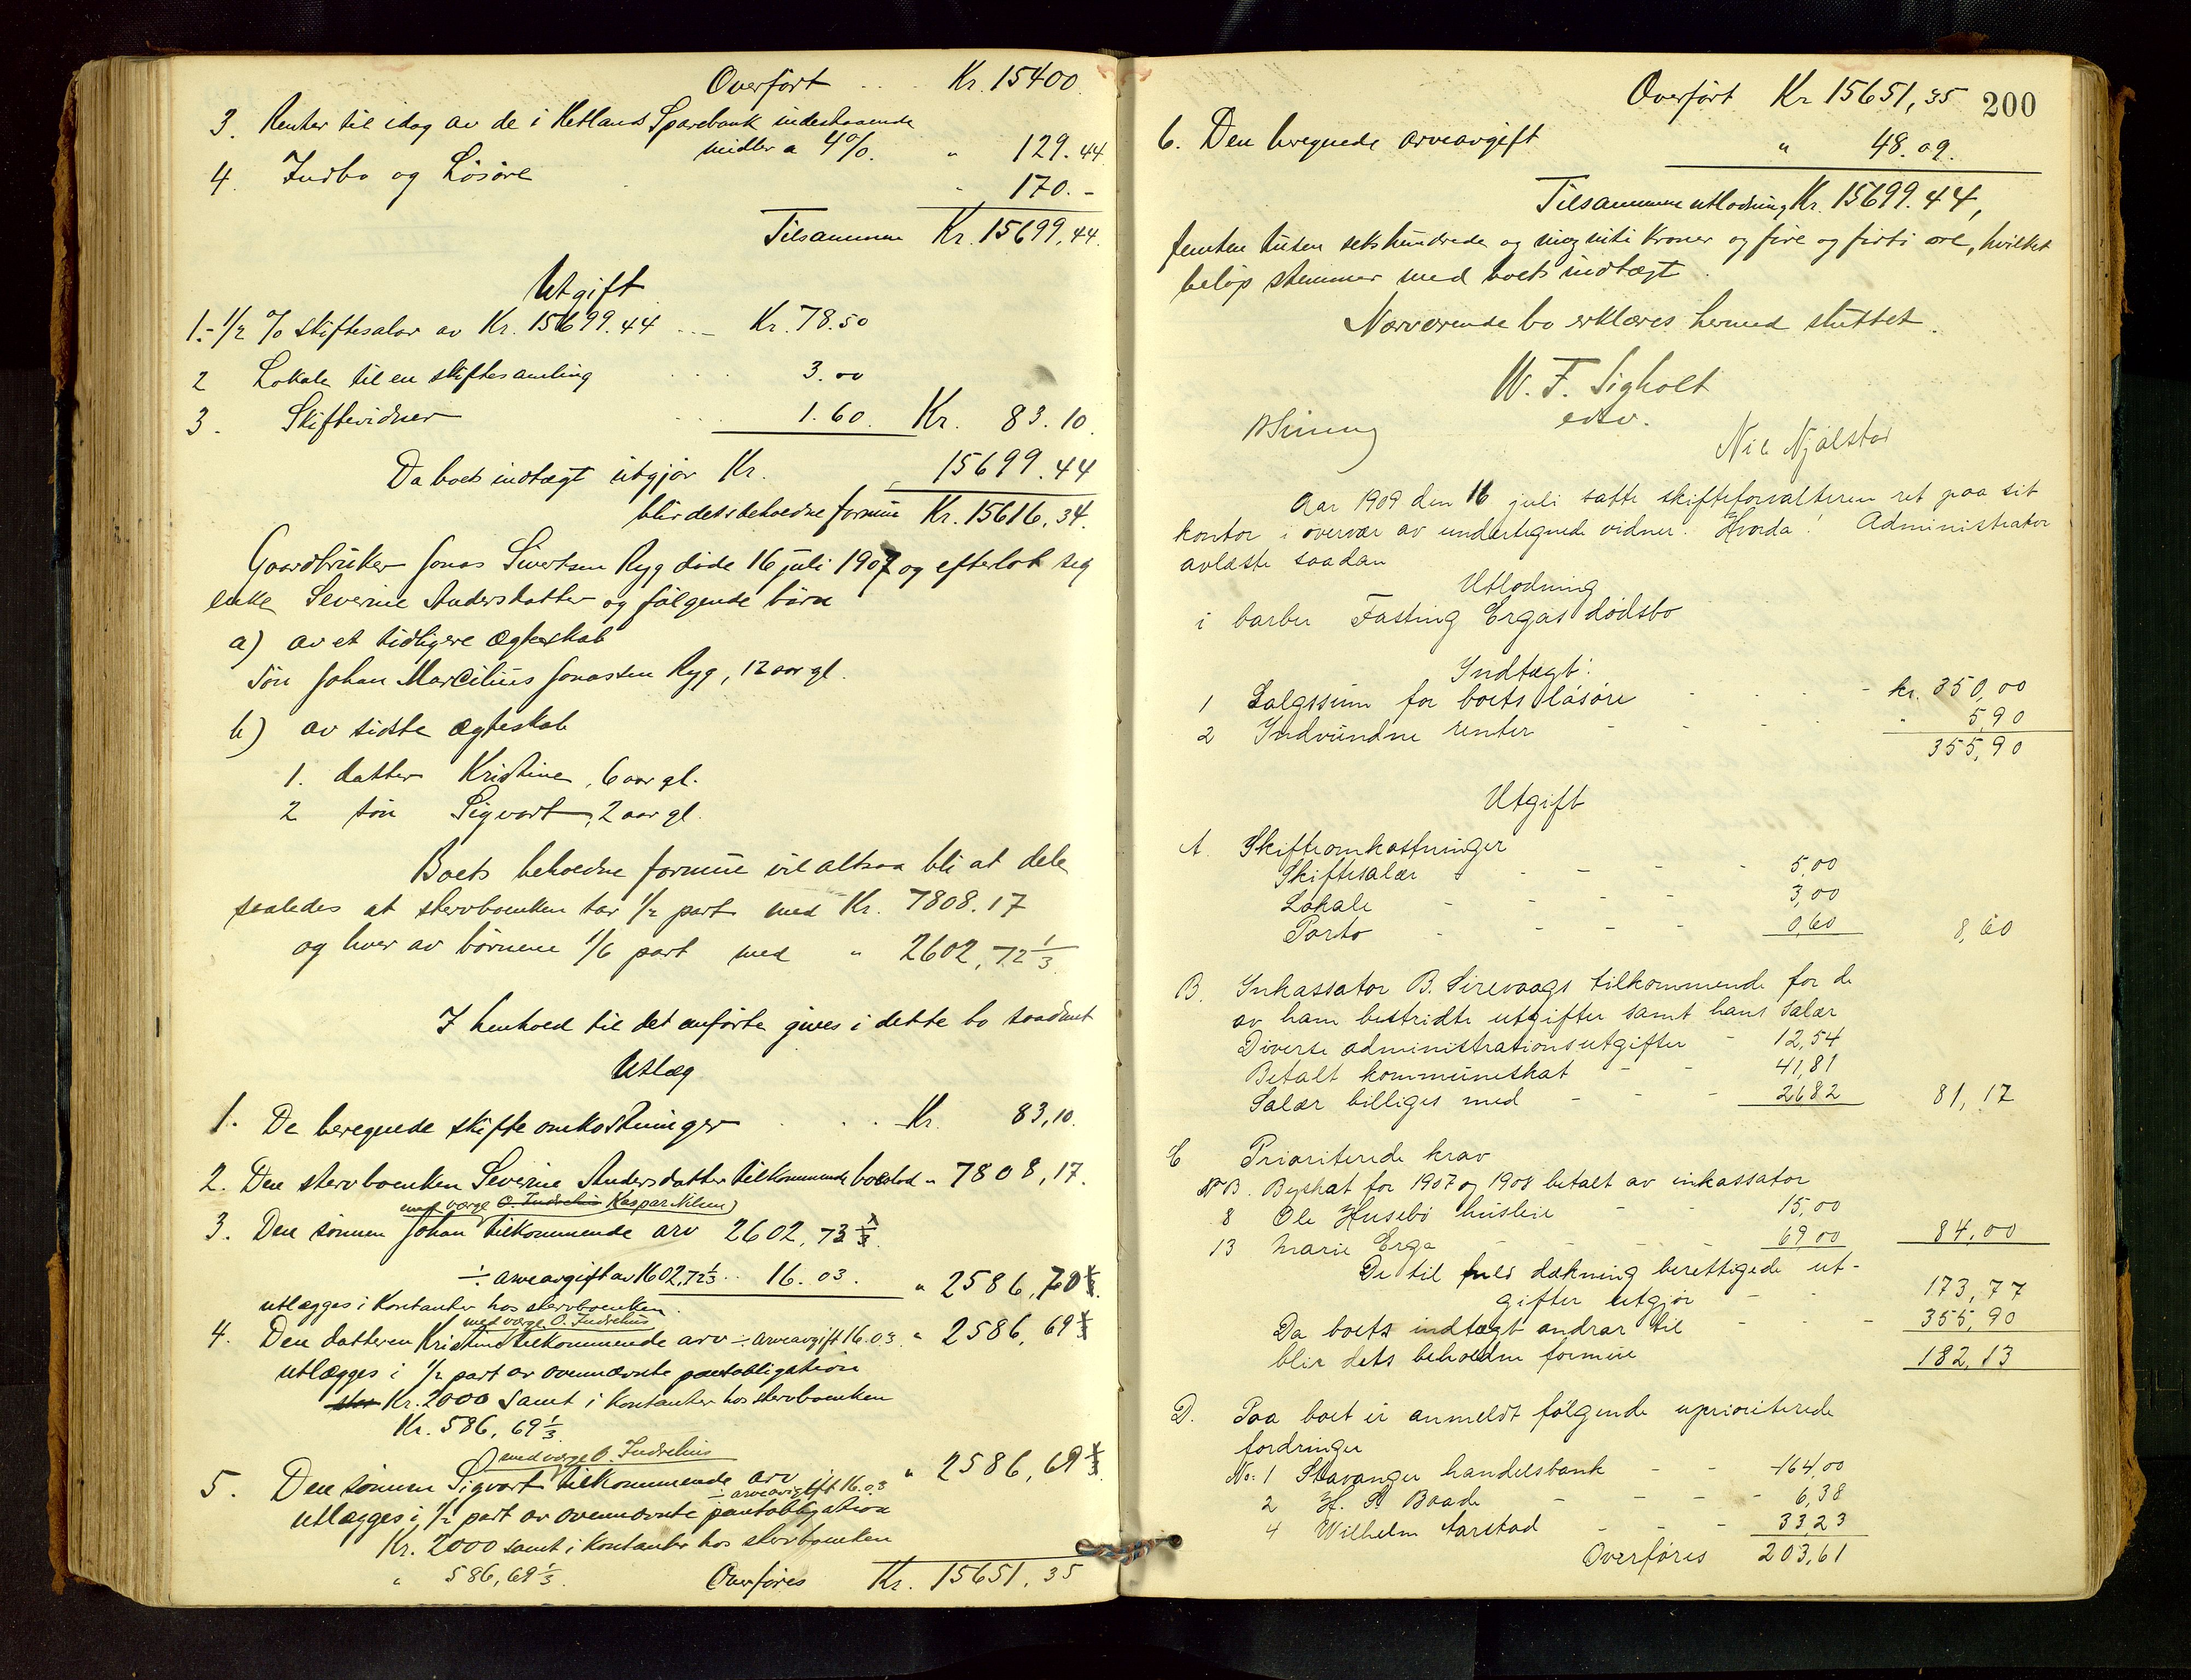 Overført . . . Kr. 15400.
3. Renter til idag av de i Hetlands Sparebank indestaaende
midler a 4%. " 129.44
4. Indbo og Løsøre " 170.-
Tilsammen Kr. 15699,44.
Utgift
1.- 1/2 % skiftesalær av Kr. 15699.44 ... Kr. 78.50
2 Lokale til en skiftesamling . . . 3.00
3. Skiftevidner . . . 1.60. Kr. 83.10.
Da boets indtægt utgjør Kr. 15699.44
blir dets beholdne formue Kr. 15616,34.
Gaardbruker Jonas Sivertsen Ryg døde 16 juli 1907 og efterlot seg
enke Severine Andersdatter og følgende børn
a) av et tidligere ægteskab
søn Johan Marcilius Jonassen Ryg, 12 aar gl.
b) av sidste ægteskab
1. datter Kristine, 6 aar gl.
2 søn Sigvart, 2 aar gl.
Boets beholdne formue vil altsaa bli at dele
saaledes at stervboenken tar 1/2 part med Kr. 7808.17
og hver av børnene 1/6 part med " 2602,72 1/3
I henhold til det anførte gives i dette bo saadant
Utlæg
1. De beregnede skifteomkostninger . . . Kr. 83,10.
2. Den stervboenken Severine Andersdatter tilkommende boeslod " 7808,17.
med værge O. Indrelius Kaspar Nilsen)
3. Den sønnen Johan tilkommende arv 2602,73 1/3
÷ arveavgift av 1602,72 1/3 .. 16.03. " 2586,70 1/3.
utlægges i Kontanter hos stervboenken.
med værge O. Indrelius
4. Den datteren Kristine tilkommende arv ÷ arveavgift 16.03. " 2586,69 1/3
utlægges i 1/2 part av ovennævnte pantobligation
stor Kr. 2000 samt i kontanter hos stervboenken
Kr. 586,69 1/3.
med værge O. Indrelius
5. Den sønnen Sigvart tilkommende arv " 2586,69 1/3.
÷ arveavgift 16.03
utlægges i 1/2 part av ovennævnte pantobligation
Kr. 2000 samt i kontanter hos stervboenken
" 586,69 1/3. Overføres Kr. 15651,35
Overført Kr 15651,35 200
6. Den beregnede arveavgift " 48.09.
Tilsammen utlodning Kr. 15699.44,
femten tusen sekshundrede og niognitti Kroner og fire og firti øre, hvilket
beløp stemmer med boets indtægt.
Nærværende bo erklæres hermed sluttet.
W. F. Sigholt
edsv.
Nils Njålstad
Aar 1909 den 16 juli satte skifteforvalteren ret paa sit
kontor i overvær av undertegnede vidner. Hvorda! Administrator
avlæste saadan
Utlodning
i barber Fasting Ergas dødsbo
Indtægt:
1 Salgssum for boets løsøre - - - - kr. 350,00
2 Indvundne renter - - - - " 5,90
355,90
Utgift
A. Skifteomkostninger
Skiftesalær - - - - 5,00
Lokale - - - - 3,00
Porto - - - - 0,60 8,60
B. Inkassator B. Sirevaags tilkommende for de
av ham bestridte utgifter samt hans salær
Diverse administrationsutgifter - 12,54
Betalt kommuneskat - - 41,81
Salær billiges med - - - 26,82 81,17
C Prioriterede krav
NB. Byskat for 1907 og 1908 betalt av inkassator
8 Ole Husebø husleie - - 15,00
13 Marie Erga - - - 69,00 84,00
De til fuld dækning berettigede ut-
gifter utgjør - - 173,77
Da boets indtægt andrar til - - - 355,90
blir dets beholdne formue 182,13
D. Paa boet er anmeldt følgende uprioriterede
fordringer
No. 1 Stavanger handelsbank - - 164,00
2 H. St Baade - - - - 6,38
4 Wilhelm Aarstad - - - 33,23
Overføres 203,61